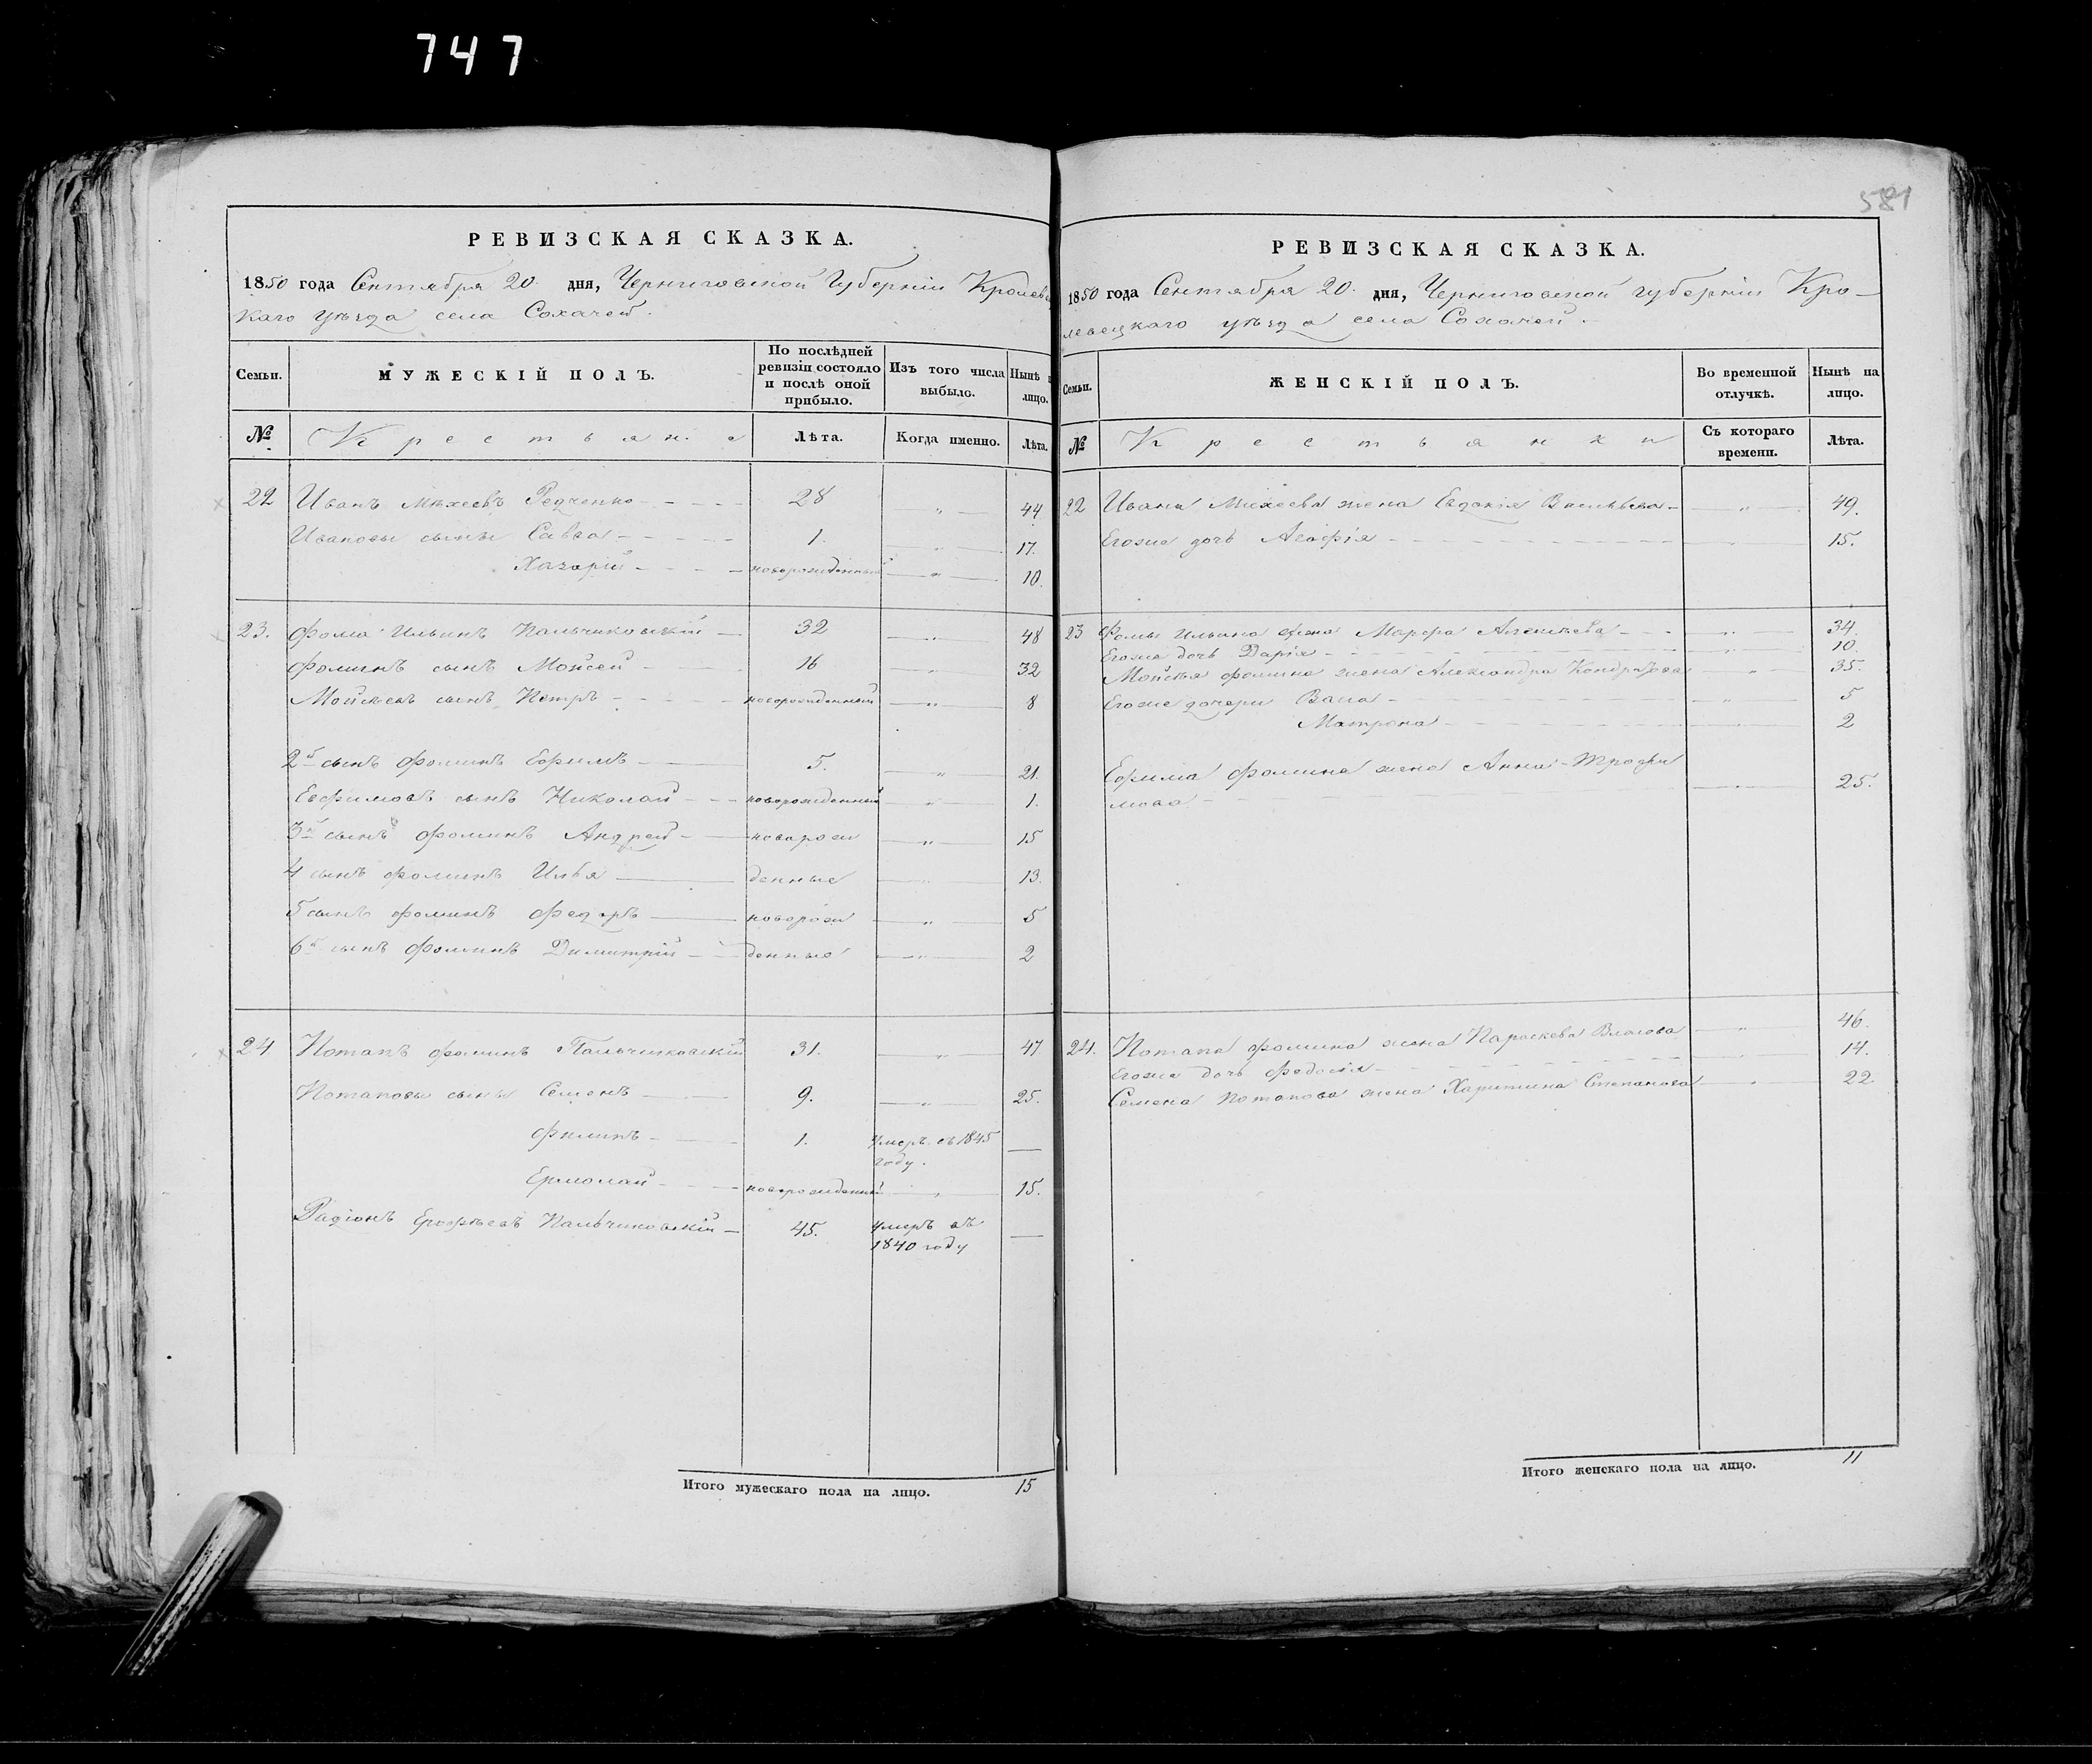 747
581
РЕВИЗСКАЯ СКАЗКА.
1850 года Сентября 20 дня, Черниговской Губерніи Кролевец
каго уѣзда села Сохачей.
Семьи. МУЖЕСКІЙ ПОЛЪ. По послѣдней ревизіи состояло и послѣ оной прибыло. Изъ того числа выбыло. Нынѣ на лицо.
№ Крестьяне Лѣта. Когда именно. Лѣта.
22 Иванъ Михеевъ Редченко 28 „ 44
Ивановы сыны Савва 1. „ 17.
Назарій новорожденный „ 10.
23. Фома Ильинъ Пальчиковскій 32 „ 48
Фоминъ сынъ Мойсей 16 „ 32
Мойсеевъ сынъ Петръ новорожденный „ 8
2й сынъ Фоминъ Ефимъ 5. „ 21.
Евфимовъ сынъ Николай новорожденный „ 1.
3й сынъ Фоминъ Андрей новорож „ 15
4 сынъ Фоминъ Илья денные „ 13.
5 сынъ Фоминъ Федоръ новорож „ 5
6й сынъ Фоминъ Димитрій денные „ 2
24 Потапъ Фоминъ Пальчиковскій 31. „ 47
Потаповы сыны Семенъ 9. „ 25.
Филипъ 1. умеръ въ 1845
году.
Ермолай новорожденный „ 15.
Радіонъ Ерофѣевъ Пальчиковскій 45. умеръ въ
1840 году
Итого мужескаго пола на лицо. 15
РЕВИЗСКАЯ СКАЗКА.
1850 года Сентября 20 дня, Черниговской губерніи Кро-
левецкаго уѣзда села Сохачей.
Семьи. ЖЕНСКІЙ ПОЛЪ. Во временной отлучкѣ. Нынѣ на лицо.
№ Крестьянки Съ котораго времени. Лѣта.
22 Ивана Михеева жена Евдокія Васильева „ 49.
Егоже дочь Агафія 15.
23 Фомы Ильина жена Марфа „ 34.
Егоже дочь Дарія „ 10.
Мойсѣя Фомина жена Александра Кондратова „ 35.
Егоже дочери „ 5
Матрона 2
Ефима Фомина жена Анна Трофи
мова „ 25.
24. Потапа Фомина жена Параскева Власова „ 46.
Егоже дочь Федосія 14.
Семена Потапова жена Харитина Степанова „ 22
Итого женскаго пола на лицо. 11